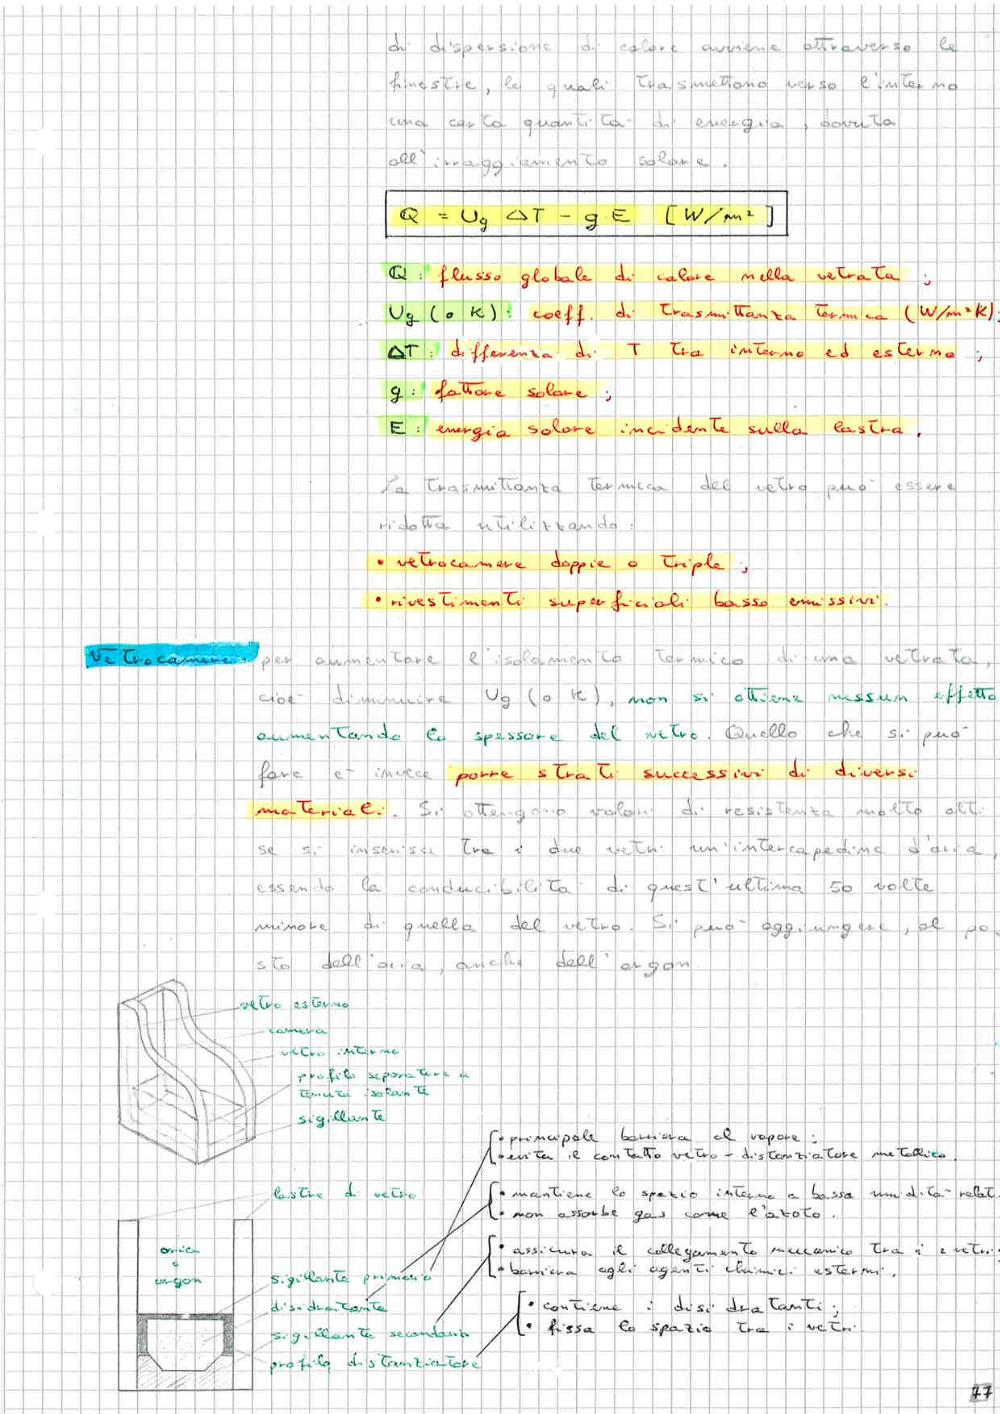 di dispersione di calore avviene attraverso le
finestre, le quali trasmettono verso l'interno
una certa quantità di energia, dovuta
all'irraggiamento solare.
Q = Ug ΔT - g E [W/m²]
Q: flusso globale di calore nella vetrata;
Ug (o K): coeff. di trasmittanza termica (W/m²K);
ΔT: differenza di T tra interno ed esterno;
g: fattore solare;
E: energia solare incidente sulla lastra.
La trasmittanza termica del vetro può essere
ridotta utilizzando:
• vetrocamere doppie o triple;
• rivestimenti superficiali basso emissivi.
Vetrocamere: per aumentare l'isolamento termico di una vetrata,
cioè diminuire Ug (o K), non si ottiene nessun effetto
aumentando lo spessore del vetro. Quello che si può
fare è invece porre strati successivi di diversi
materiali. Si ottengono valori di resistenza molto alti
se si inserisce tra i due vetri un'intercapedine d'aria,
essendo la conducibilità di quest'ultima 50 volte
minore di quella del vetro. Si può aggiungere, al po-
sto dell'aria, anche dell'argon
vetro esterno
camera
vetro interno
profilo separatore a
tenuta isolante
sigillante
• principale barriera al vapore;
• evita il contatto vetro - distanziatore metallico.
lastre di vetro
• mantiene lo spazio interno a bassa umidità relat.
• non assorbe gas come l'azoto.
aria
o
argon
• assicura il collegamento meccanico tra i 2 vetri;
• barriera agli agenti chimici esterni.
sigillante primario
disidratante
• contiene i disidratanti;
• fissa lo spazio tra i vetri
sigillante secondario
profilo distanziatore
77